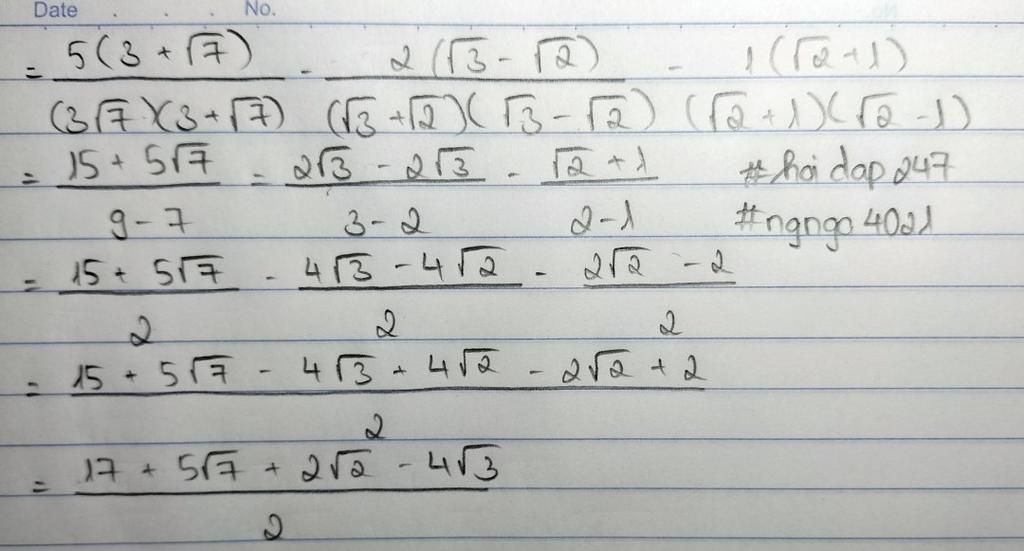 Date . . . No.
= 5(3 + √7) / (3√7)(3+√7) - 2(√3 - √2) / (√3 + √2)(√3 - √2) - 1(√2 + 1) / (√2 + 1)(√2 - 1)
= 15 + 5√7 / 9 - 7 = 2√3 - 2√3 / 3 - 2 - √2 + 1 / 2 - 1 #hoi dap 247
#ngngo4021
= 15 + 5√7 / 2 - 4√3 - 4√2 / 2 - 2√2 - 2 / 2
= 15 + 5√7 - 4√3 + 4√2 - 2√2 + 2 / 2
= 17 + 5√7 + 2√2 - 4√3 / 2